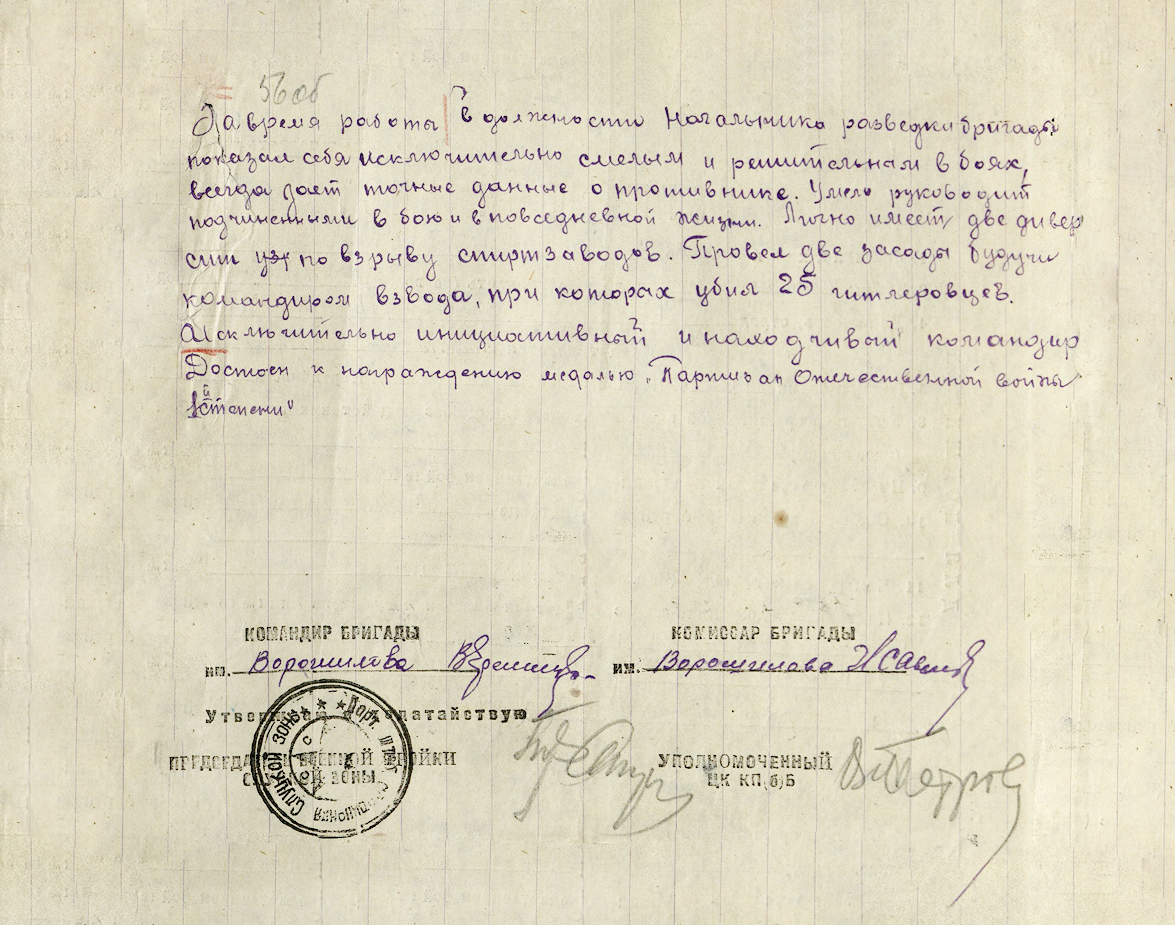 56 об
За время работы в должности Начальника разведки бригады
показал себя исключительно смелым и решительным в боях,
всегда дает точные данные о противнике. Умело руководит
подчиненными в бою и в повседневной жизни. Лично имеет две дивер
сии по взрыву спиртзаводов. Провел две засады будучи
командиром взвода, при которых убил 25 гитлеровцев.
Исключительно инициативный и находчивый командир
Достоен к награждению медалью „Партизан Отечественной войны
степени"
КОМАНДИР БРИГАДЫ
им. Ворошилова
КОМИССАР БРИГАДЫ
им. Ворошилова
ПРЕДСЕДАТЕЛЬ ВОЕННОЙ ТРОЙКИ
СЛУЦКОЙ ЗОНЫ
УПОЛНОМОЧЕННЫЙ
ЦК КП(б)Б
СЛУЦКОЙ ЗОНЫ